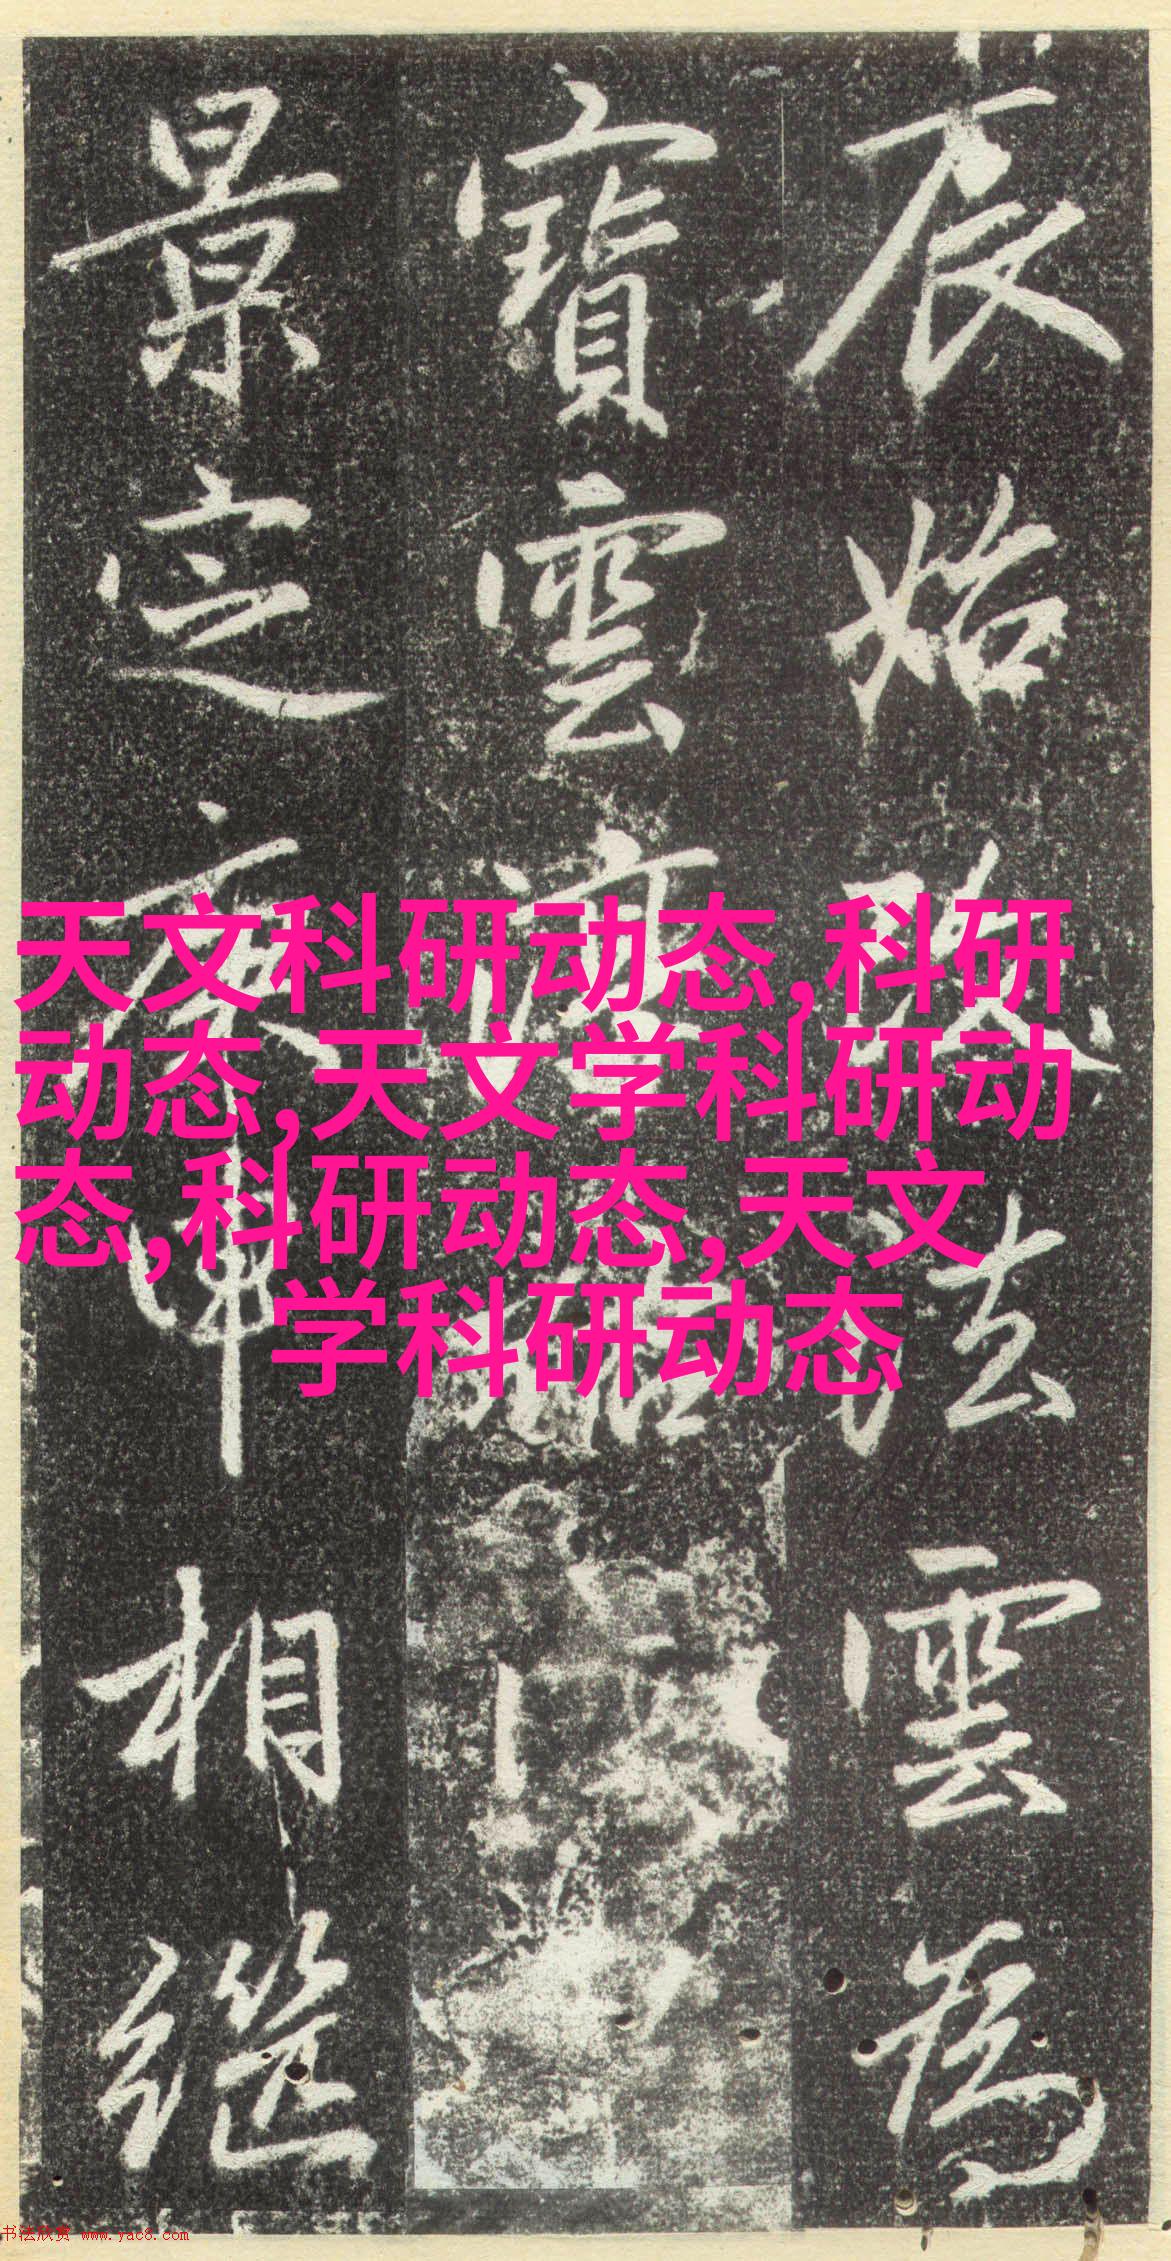 辰始改法雲為
寶雲
景定庚申相繼
天文科研动态,科研
动态,天文学科研动
态,科研动态,天文
学科研动态
书法欣赏 www.yac8.com